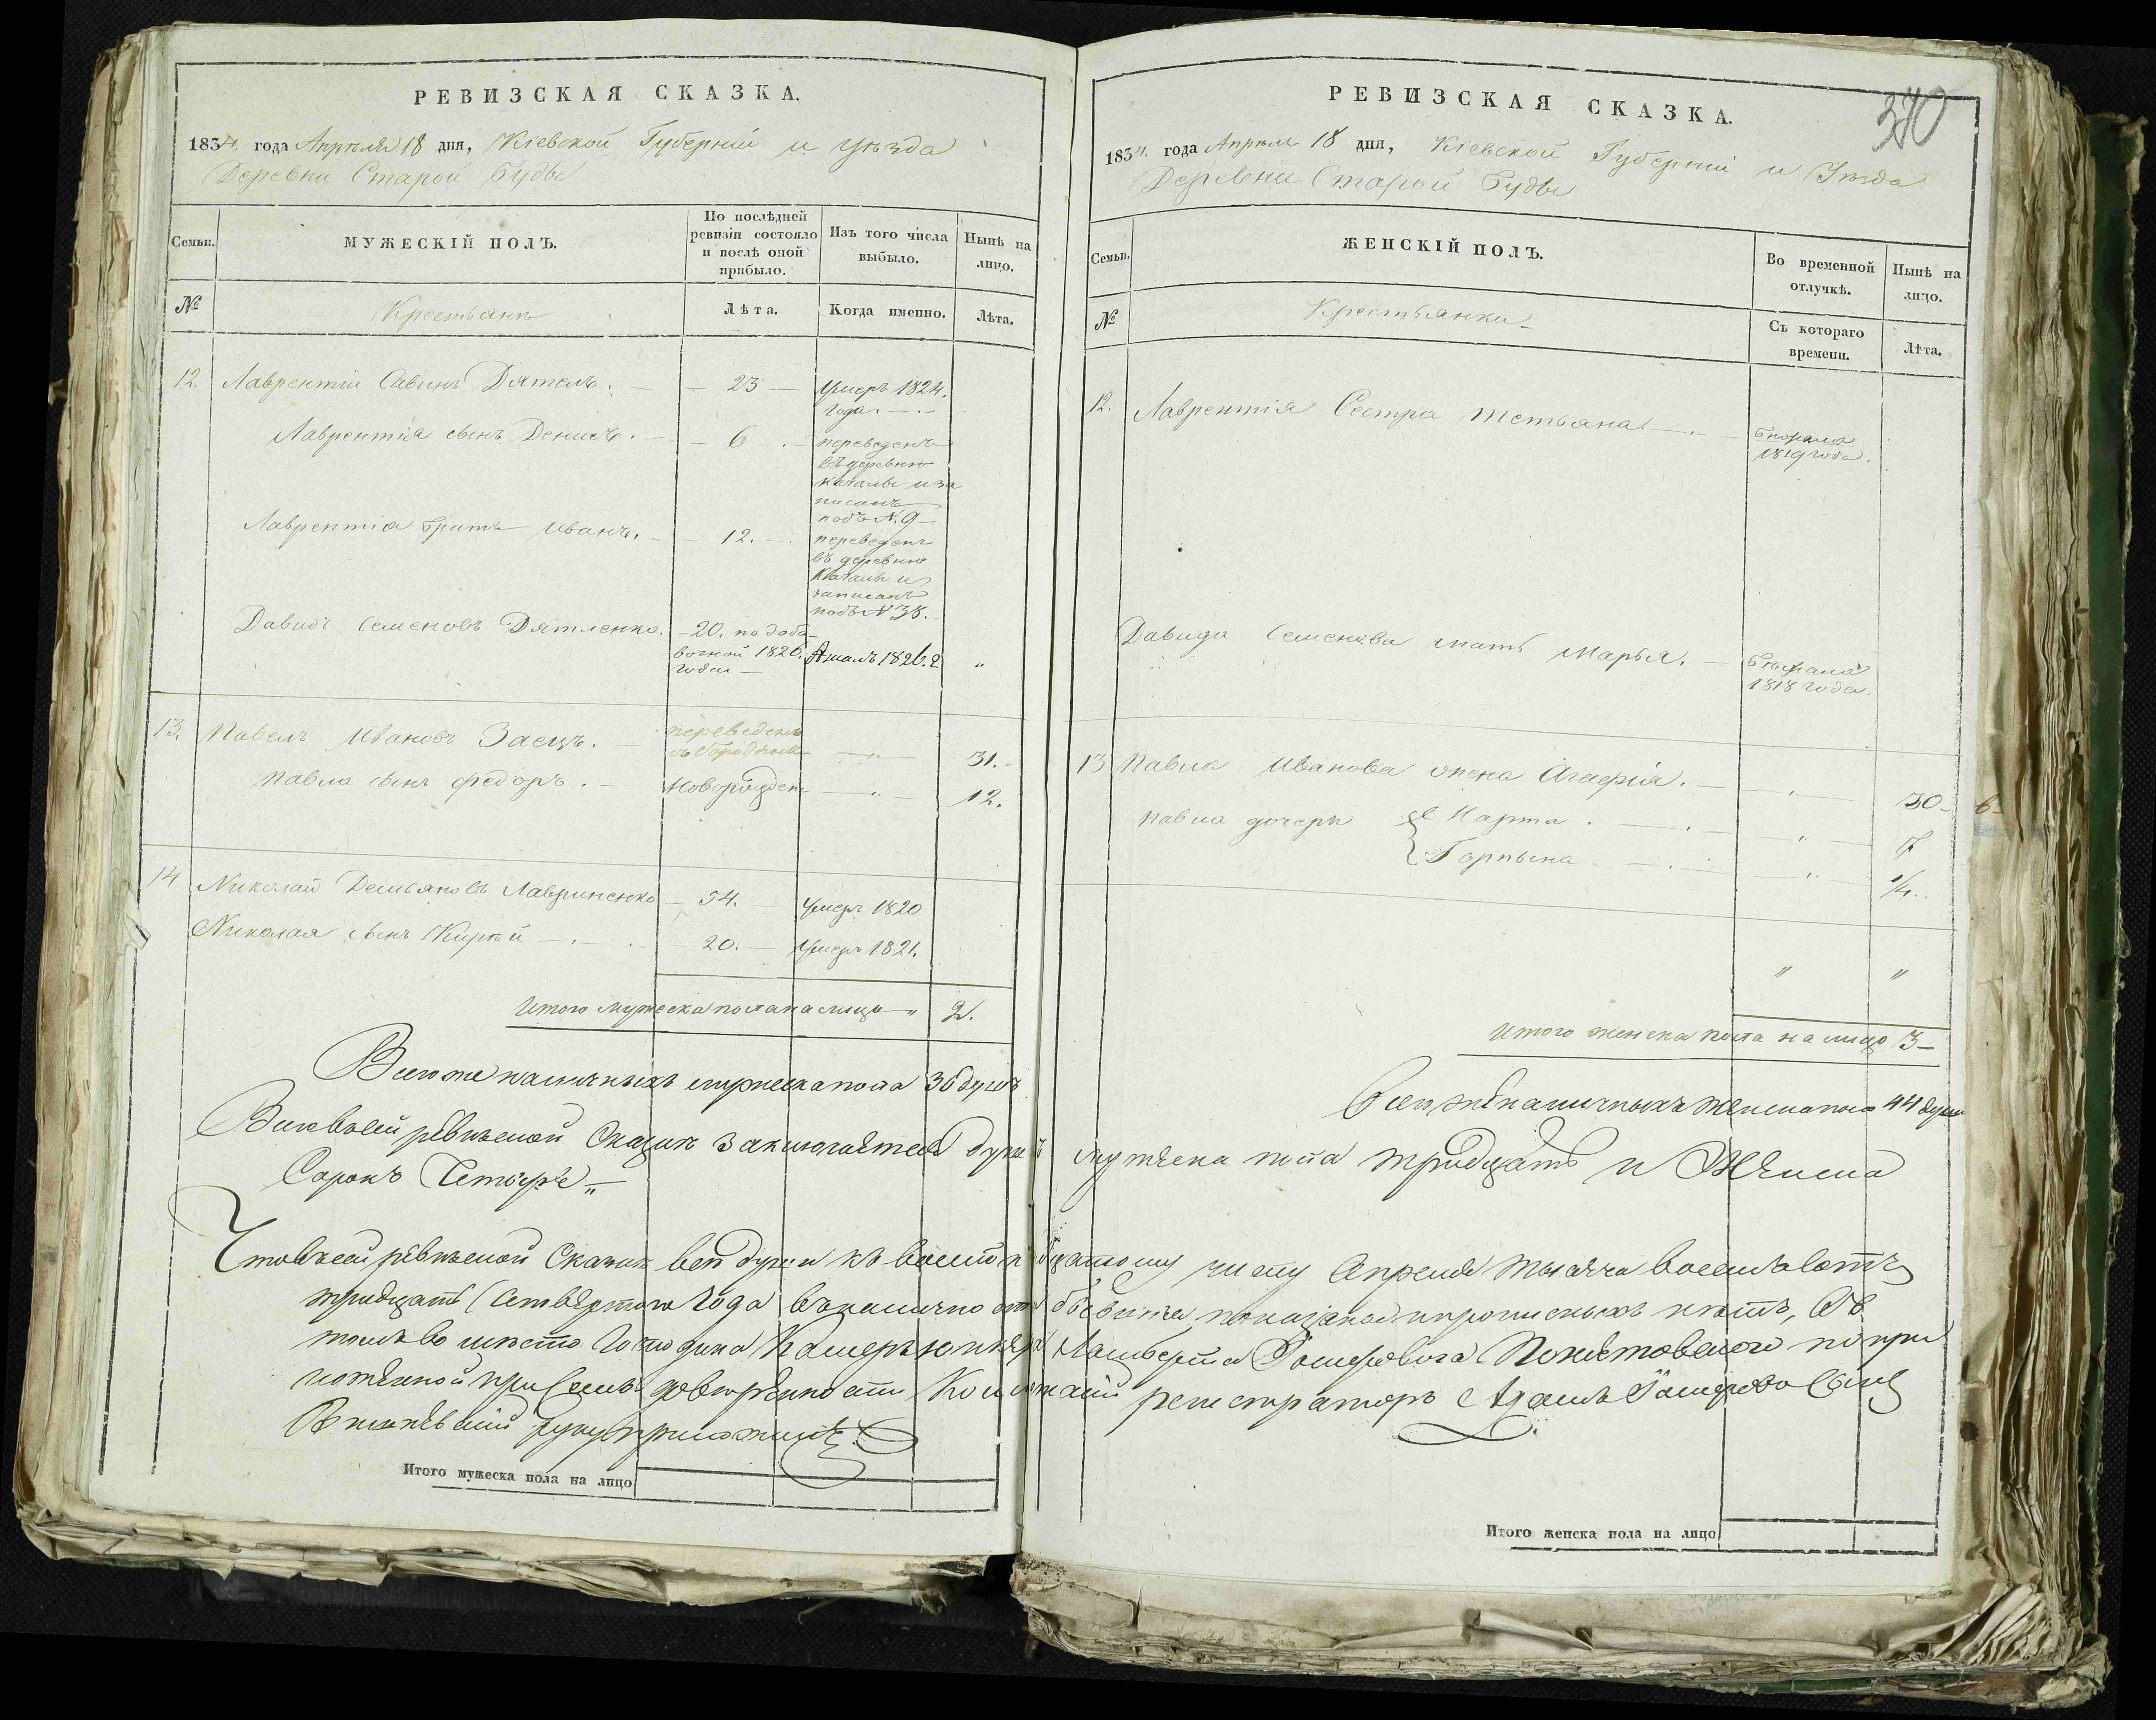 РЕВИЗСКАЯ СКАЗКА.
1834. года Апрѣля 18 дня, Кіевской Губерніи и уѣзда
Деревни Старой Буды
Семьи.
МУЖЕСКІЙ ПОЛЪ.
По послѣдней ревизіи состояло и послѣ оной прибыло.
Изъ того числа выбыло.
Нынѣ на лицо.
№
Крестьянъ
Лѣта.
Когда именно.
Лѣта.
12. Лаврентій Савинъ Дятелъ. — 23 — Умеръ 1824.
года.
Лаврентія сынъ Денисъ. — 6. — переведенъ
въ деревню
и за
писанъ
подъ N. 9
Лаврентія братъ Иванъ. — 12. — переведенъ
въ деревню
и
записанъ
подъ N 38.
Давидъ Семеновъ Дятленко. — 20. по доба
вочной 1826. 1826. г. "
года —
13. Павелъ Ивановъ Заецъ. — переведенъ
31.
Павла сынъ Федоръ. — Новорожден 12.
14 Николай Демьяновъ Лавриненко — 54. — Умеръ 1820
Николая сынъ Кирѣй — 20. — Умеръ 1821.
Итого мужеска пола на лицо " 2.
Всего же наличныхъ мужеска пола 30 душъ
Итого мужеска пола на лицо
370
РЕВИЗСКАЯ СКАЗКА.
1834. года Апрѣля 18 дня, Кіевской Губерніи и Уѣзда
Деревни Старой Буды
Семьи.
ЖЕНСКІЙ ПОЛЪ.
Во временной отлучкѣ.
Нынѣ на лицо.
№
Крестьянки
Съ котораго времени.
Лѣта.
12. Лаврентія Сестра Тетьяна — бѣжала
1819 года.
Давида Семенова мать Марья. — бѣжала
1818 года.
13 Павла Иванова жена Агафія. — 30 — 6
Павла дочери Марта. — 7
Горпына — 1/4.
" "
Итого женска пола на лицо 3 —
Всего же наличныхъ женска пола 44 души
Въ сей ревизской Сказкѣ заключается душъ мужеска пола тридцать и Женска
Сорокъ Четыре "
Что въ сей ревизской Сказкѣ всѣ души къ числу Апреля тысяча восемьсотъ
тридцать Четвертого Года въ налично показаны и прописныхъ нѣтъ, Въ
томъ во мѣсто Господина Камеръ юнкера Ламберта Понятовского по при
ложенной при семъ довѣренности регистраторъ Адамъ Сынъ
руку приложилъ.
Итого женска пола на лицо